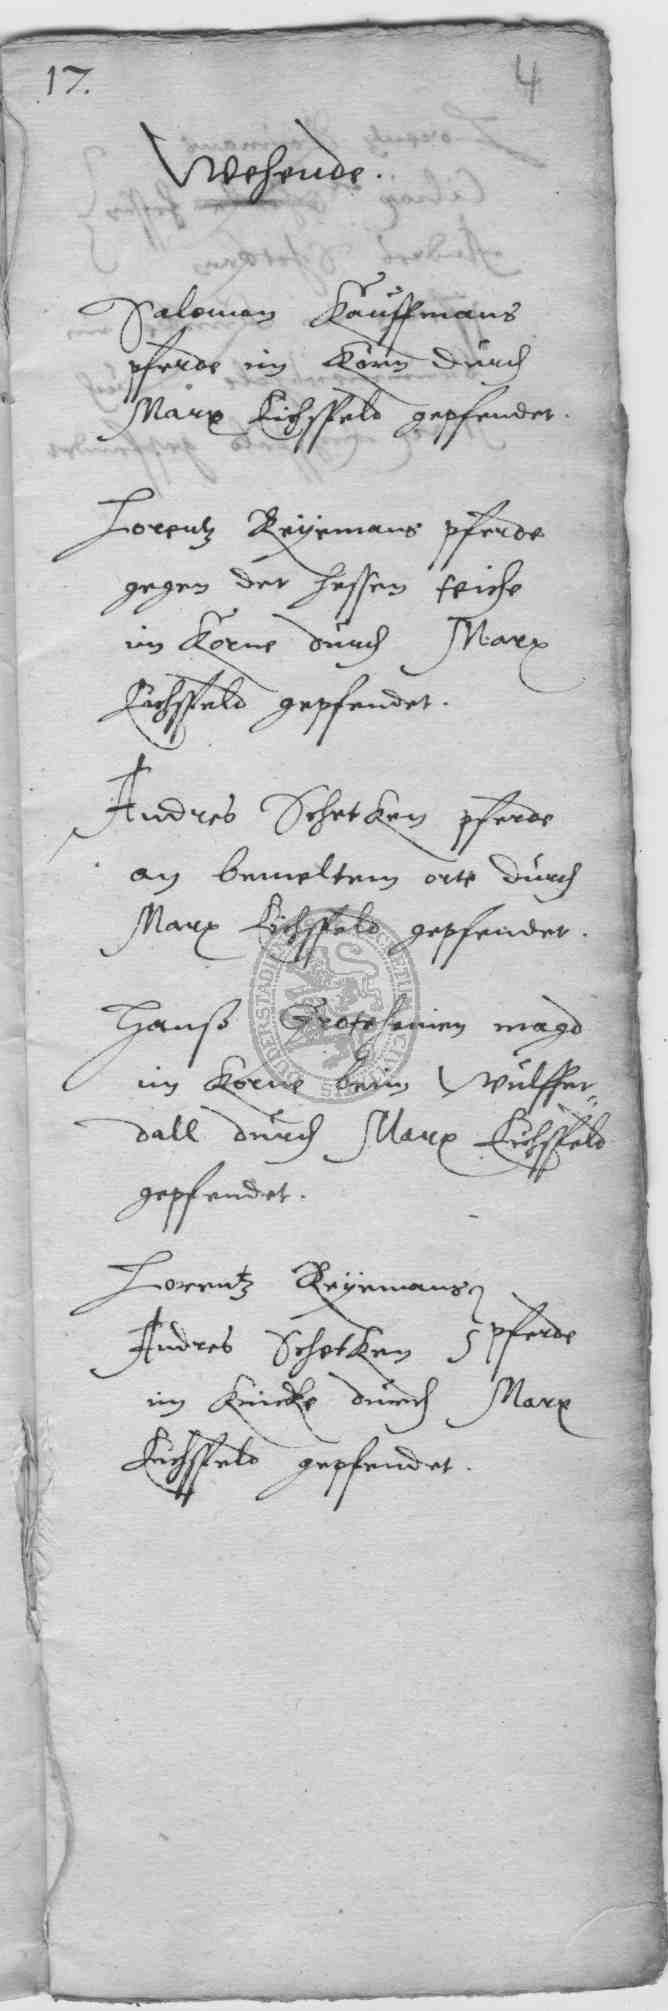 17.
4
Wehende.
Salomon Kauffmans
pferde im Korn durch
Marx Eichsfeld gepfendet.
Lorentz Reÿemans pferde
gegen der hessen teiche
im Korne durch Marx
Eichsfeld gepfendet.
Andres Schetken pferde
an bemeltem orte durch
Marx Eichsfeld gepfendet.
Hanß magd
im Korne beim Wulffer
dall durch Marx Eichsfeld
gepfendet.
Lorentz Reÿemans
Andres Schetken pferde
im Knicke durch Marx
Eichsfeld gepfendet.